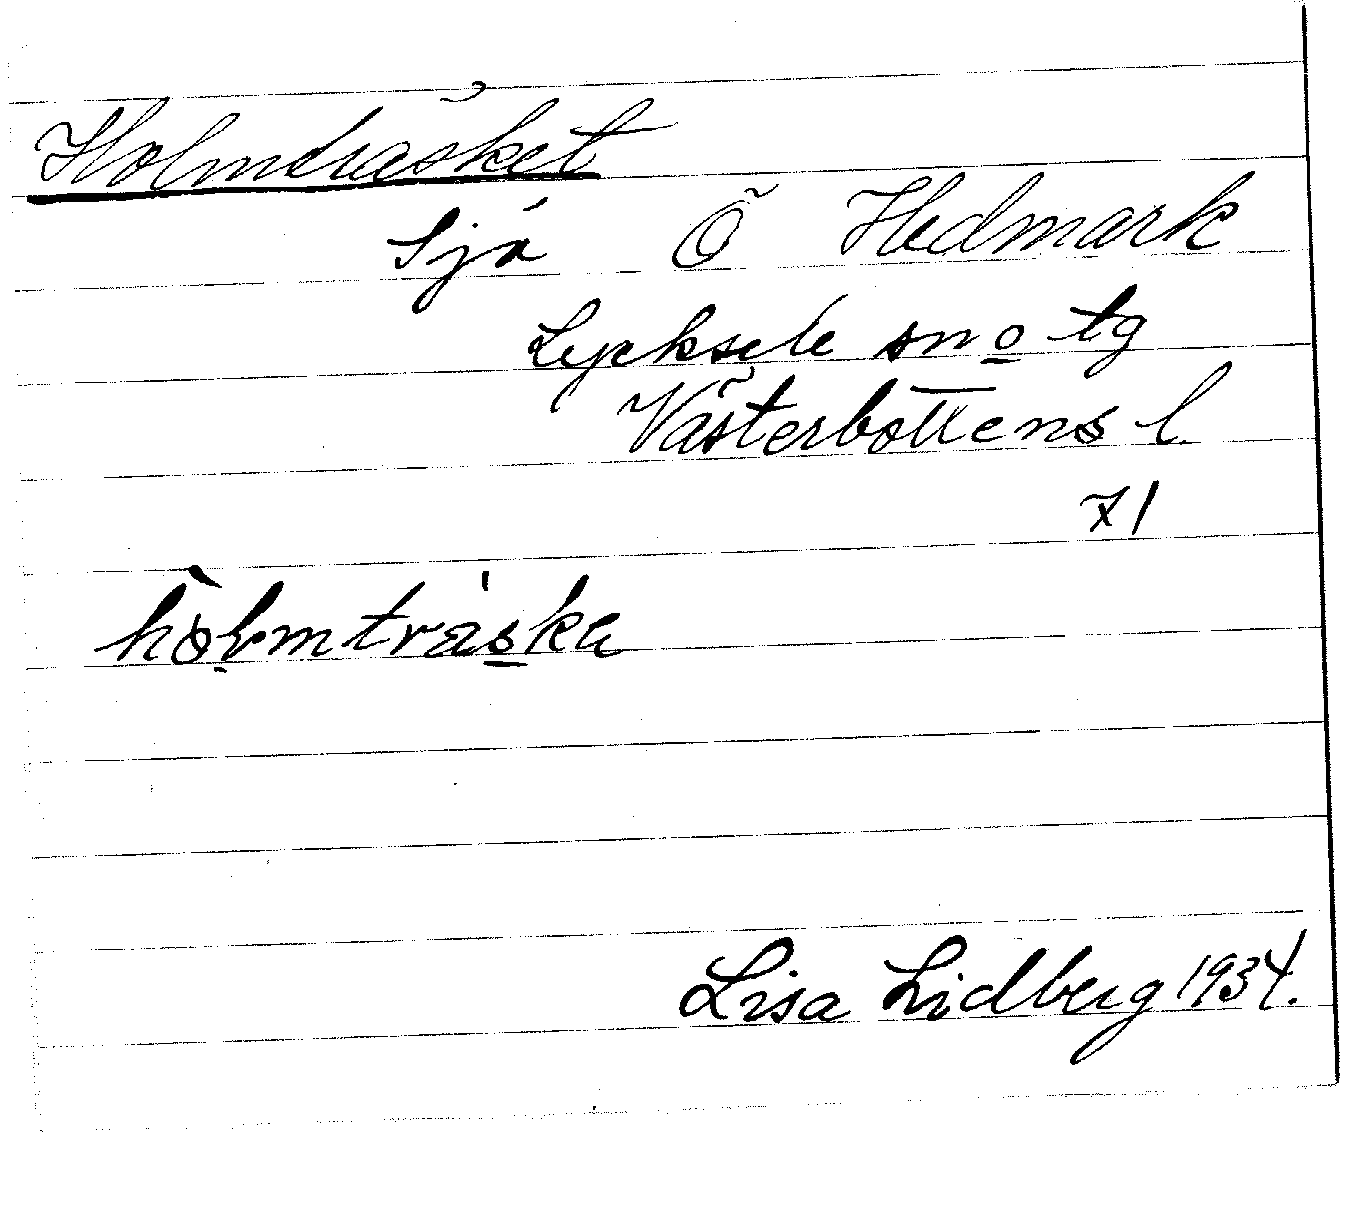 Holmträsket
Sjö Ö Hedmark
Lycksele sn o tg
Västerbottens l.
71
hòlmtra̍ska
Lisa Lidberg 1934.